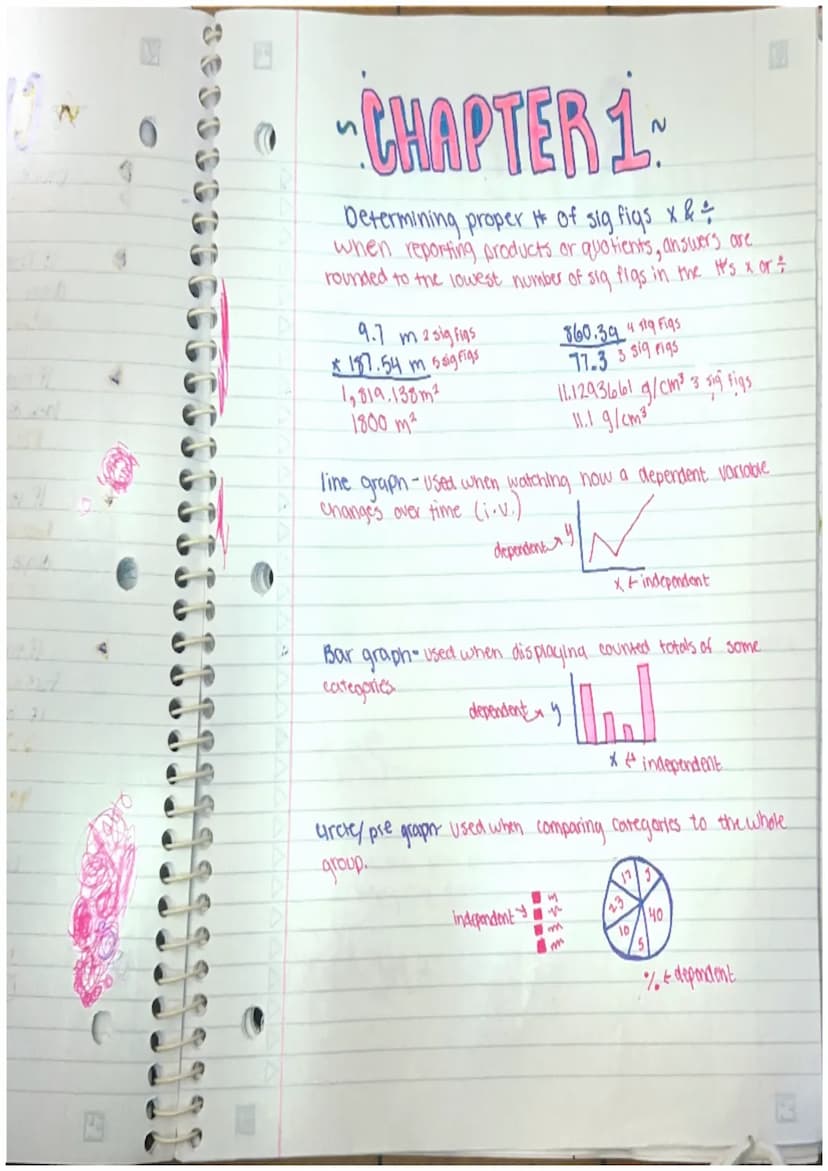 ~CHAPTER 1~
Determining proper # of sig figs x & ÷
when reporting products or quotients, answers are
rounded to the lowest number of sig figs in the #'s x or ÷
9.7 m 2 sig figs
x 187.54 m 5 sig figs
1,819.138m²
1800 m²
860.3g 4 sig figs
77.3 3 sig figs
11.1293661 g/cm³ 3 sig figs
11.1 g/cm³
line graph - used when watching how a dependent variable
changes over time (i.v.)
dependent → y
x ← independent
Bar graph - used when displaying counted totals of some
categories.
dependent → y
x ← independent
circle/pie graph - used when comparing categories to the whole
group.
independent →
17 5
23 40
10 5
% ← dependent